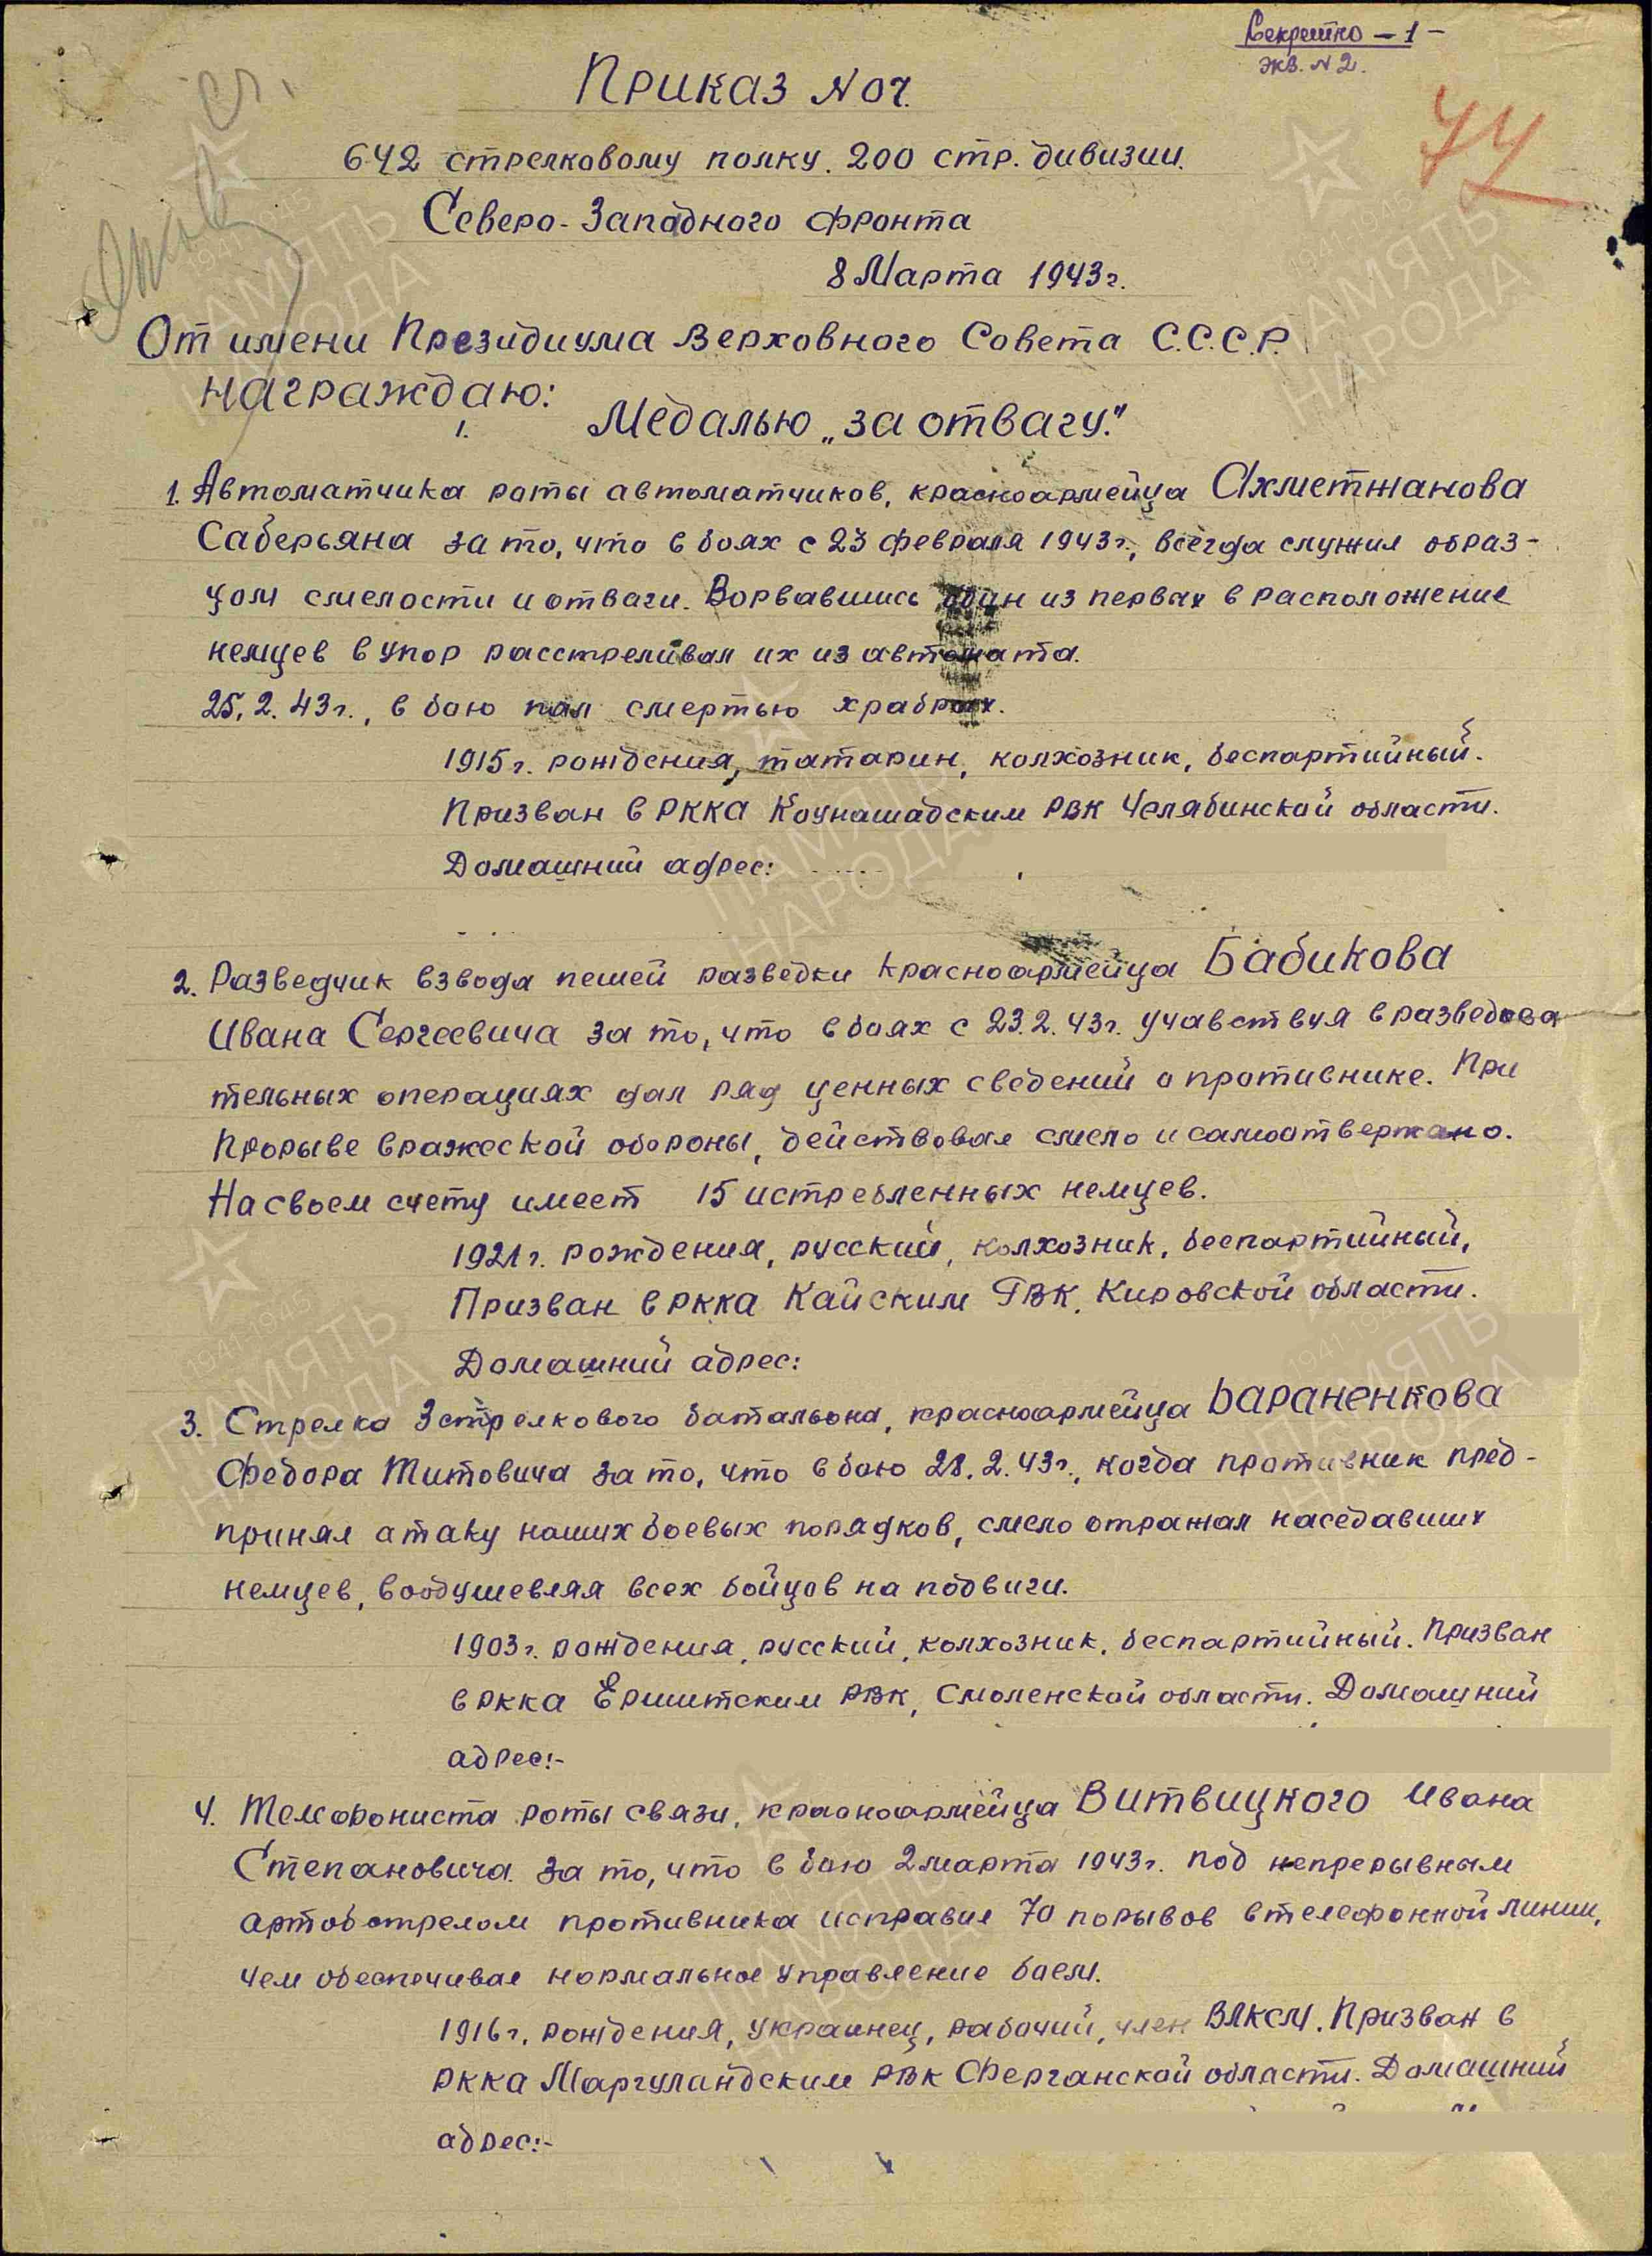 Секретно – 1 –
экз. N 2.
Приказ N 07.
642 стрелковому полку. 200 стр. дивизии.
Северо-Западного фронта
8 Марта 1943г.
От имени Президиума Верховного Совета С.С.С.Р.
награждаю:
1. Медалью „за отвагу."
1. Автоматчика роты автоматчиков, красноармейца Ахметжанова
Саберьяна за то, что в боях с 23 февраля 1943г., всегда служил образ-
цом смелости и отваги. Ворвавшись один из первых в расположение
немцев в упор расстреливал их из автомата.
25.2.43г., в бою пал смертью храбрых.
1915г. рождения, татарин, колхозник, беспартийный.
Призван в РККА Коунашадским РВК Челябинской области.
Домашний адрес:
2. Разведчик взвода пешей разведки красноармейца Бабикова
Ивана Сергеевича за то, что в боях с 23.2.43г. учавствуя в разведова
тельных операциях дал ряд ценных сведений о противнике. При
прорыве вражеской обороны, действовал смело и самоотвержано.
На своем счету имеет 15 истребленных немцев.
1921г. рождения, русский, колхозник, беспартийный,
Призван в РККА Кайским РВК, Кировской области.
Домашний адрес:
3. Стрелка 3 стрелкового батальона, красноармейца Бараненкова
Федора Титовича за то, что в бою 28.2.43г., когда противник пред-
принял атаку наших боевых порядков, смело отражал наседавших
немцев, воодушевляя всех бойцов на подвиги.
1903г. рождения, русский, колхозник, беспартийный. Призван
в РККА Ершитским РВК, Смоленской области. Домашний
адрес:-
4. Телефониста роты связи, красноармейца Витвицкого Ивана
Степановича за то, что в бою 2 марта 1943г. под непрерывным
артобстрелом противника исправил 70 порывов в телефонной линии,
чем обеспечивал нормальное управление боем.
1916г. рождения, украинец, рабочий, член ВЛКСМ. Призван в
РККА Маргуландским РВК Ферганской области. Домашний
адрес:-
ПАМЯТЬ
НАРОДА
1941 1945